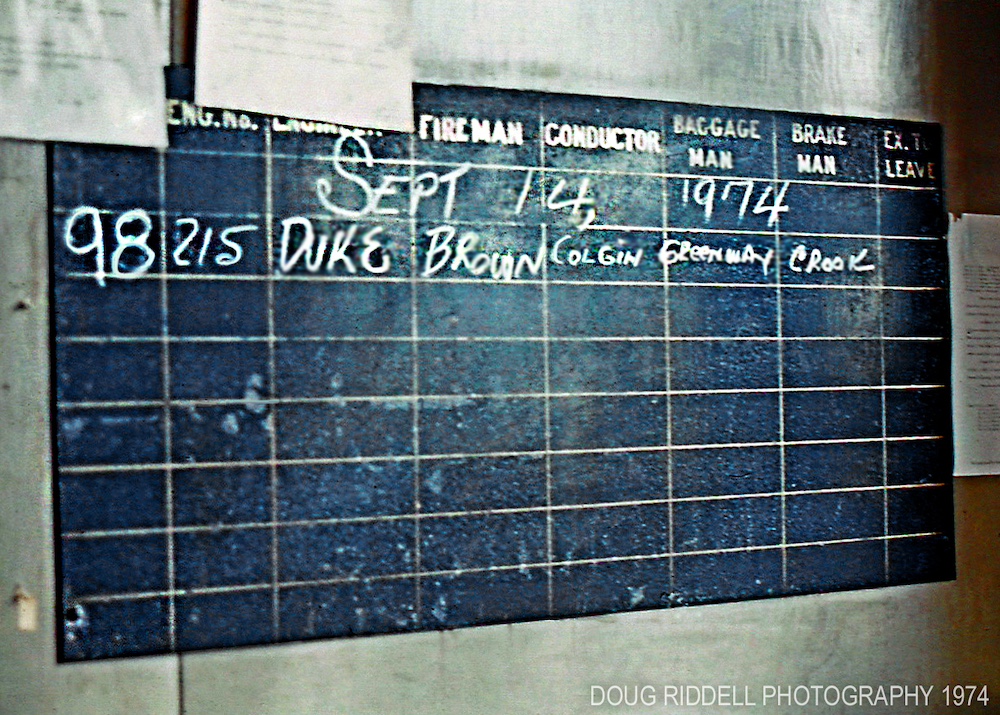 ENG. NO. ENGINEER FIREMAN CONDUCTOR BAGGAGE MAN BRAKE MAN EX. TO LEAVE
SEPT 14, 1974
98 215 DUKE BROWN COLGIN GREENWAY CROOK
DOUG RIDDELL PHOTOGRAPHY 1974